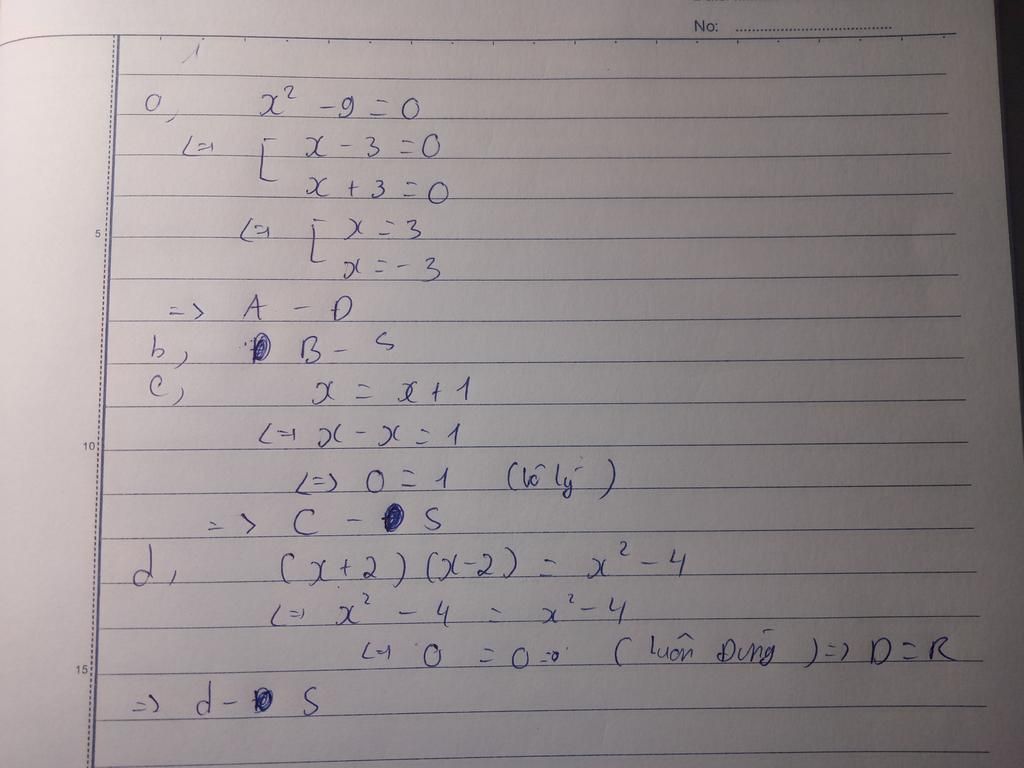 No: ....................................
1
a, x² - 9 = 0
<=> [ x - 3 = 0
x + 3 = 0
5 <=> [ x = 3
x = - 3
=> A - D
b, B - S
c, x = x + 1
10 <=> x - x = 1
<=> 0 = 1 (Vô lý)
=> C - S
d, (x+2) (x-2) = x² - 4
<=> x² - 4 = x² - 4
15 <=> 0 = 0 (luôn Đúng) => D = R
=> d - S